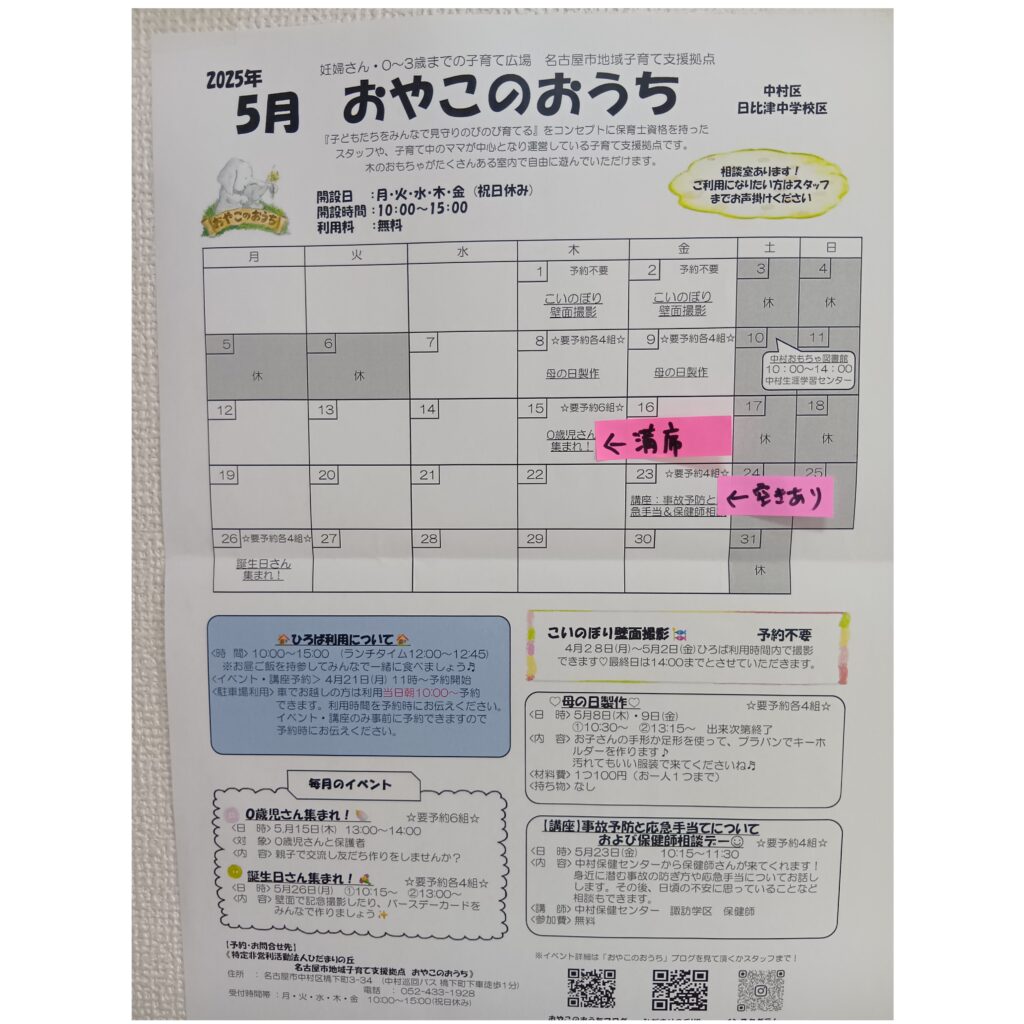 妊婦さん・0～3歳までの子育て広場　名古屋市地域子育て支援拠点
2025年
5月
おやこのおうち
中村区
日比津中学校区
『子どもたちをみんなで見守りのびのび育てる』をコンセプトに保育士資格を持った
スタッフや、子育て中のママが中心となり運営している子育て支援拠点です。
木のおもちゃがたくさんある室内で自由に遊んでいただけます。
相談室あります！
ご利用になりたい方はスタッフ
までお声掛けください
おやこのおうち
開設日　：月・火・水・木・金（祝日休み）
開設時間：10:00～15:00
利用料　：無料
月　火　水　木　金　土　日
1　予約不要　2　予約不要　3　4
こいのぼり　こいのぼり　休　休
壁面撮影　壁面撮影
5　6　7　8　☆要予約各4組☆　9　☆要予約各4組☆　10　11
休　休　母の日製作　母の日製作
中村おもちゃ図書館
10：00～14：00
中村生涯学習センター
12　13　14　15　☆要予約6組☆　16　17　18
0歳児さん　←満席　休　休
集まれ！
19　20　21　22　23　☆要予約4組☆　24　25
講座：事故予防と　←空きあり
急手当＆保健師相
26　☆要予約各4組☆　27　28　29　30　31
誕生日さん　休
集まれ！
ひろば利用について
<時　間> 10:00～15:00　(ランチタイム12:00～12:45)
※お昼ご飯を持参してみんなで一緒に食べましょう♬
<イベント・講座予約> 4月21日(月) 11時～予約開始
<駐車場利用> 車でお越しの方は利用当日朝10:00～予約
できます。利用時間を予約時にお伝えください。
イベント・講座のみ事前に予約できますので
予約時にお伝えください。
こいのぼり壁面撮影　予約不要
4月28日(月)～5月2日(金)ひろば利用時間内で撮影
できます♡最終日は14:00までとさせていただきます。
♡母の日製作♡　☆要予約各4組☆
<日　時> 5月8日(木)・9日(金)
①10:30～　②13:15～　出来次第終了
<内　容> お子さんの手形か足形を使って、プラバンでキーホ
ルダーを作ります♪
汚れてもいい服装で来てくださいね♬
<材料費> 1つ100円（お一人1つまで）
<持ち物> なし
毎月のイベント
0歳児さん集まれ！　☆要予約6組☆
<日　時> 5月15日(木)　13:00～14:00
<対　象> 0歳児さんと保護者
<内　容> 親子で交流し友だち作りをしませんか？
誕生日さん集まれ！　☆要予約各4組☆
<日　時> 5月26日(月)　①10:15～　②13:00～
<内　容> 壁面で記念撮影したり、バースデーカードを
みんなで作りましょう✨
【講座】事故予防と応急手当てについて
および保健師相談デー☺　☆要予約4組☆
<日　時> 5月23日(金)　10:15～11:30
<内　容> 中村保健センターから保健師さんが来てくれます！
身近に潜む事故の防ぎ方や応急手当についてお話し
します。その後、日頃の不安に思っていることなど
相談もできます。
<講　師> 中村保健センター　諏訪学区　保健師
<参加費> 無料
【予約・お問合せ先】
《特定非営利活動法人ひだまりの丘
名古屋市地域子育て支援拠点　おやこのおうち》
住所　：名古屋市中村区橋下町3-34　(中村巡回バス 橋下町下車徒歩1分)
電話　：052-433-1928
受付時間帯　：月・火・水・木・金　10:00～15:00(祝日休み)
※イベント詳細は「おやこのおうち」ブログを見て頂くかスタッフまで！
おやこのおうちブログ